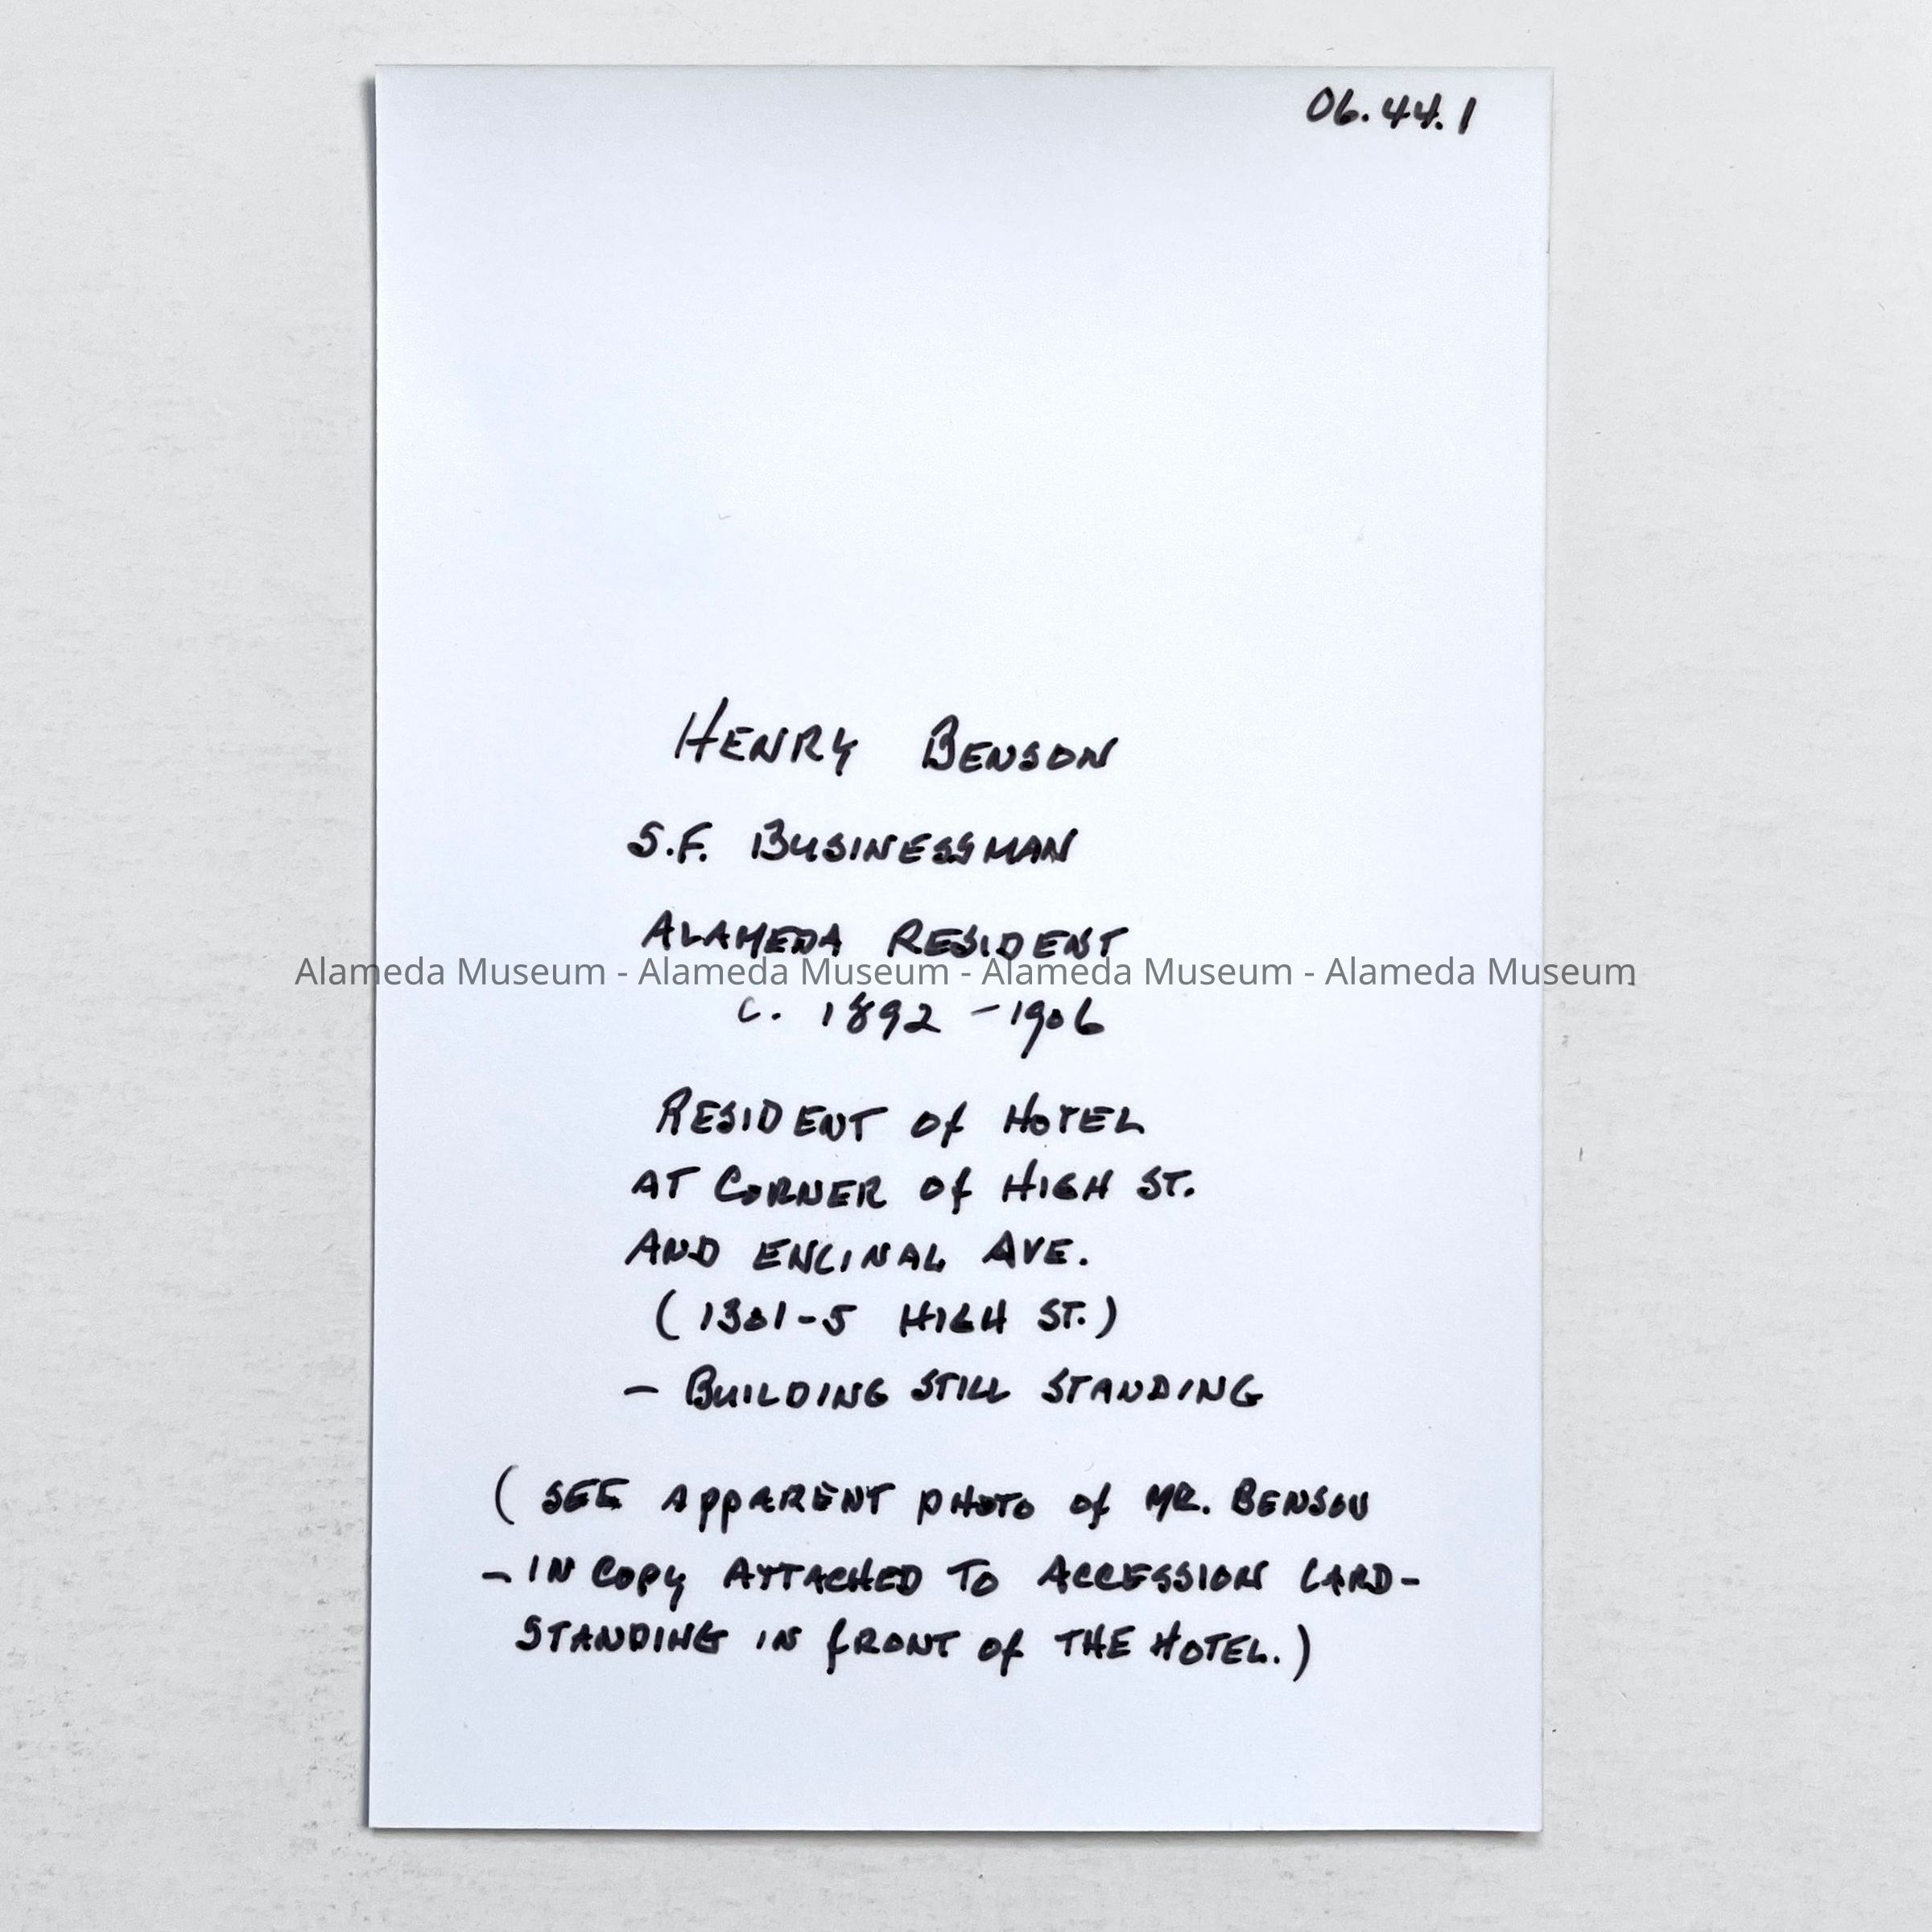 06.44.1
HENRY BENSON
S.F. BUSINESSMAN
ALAMEDA RESIDENT
Alameda Museum - Alameda Museum - Alameda Museum - Alameda Museum
c. 1892 - 1906
RESIDENT of HOTEL
AT CORNER of HIGH ST.
AND ENCINAL AVE.
(1301-5 HIGH ST.)
- BUILDING STILL STANDING
(SEE APPARENT PHOTO of MR. BENSON
- IN COPY ATTACHED TO ACCESSION CARD-
STANDING IN fRONT of THE HOTEL.)